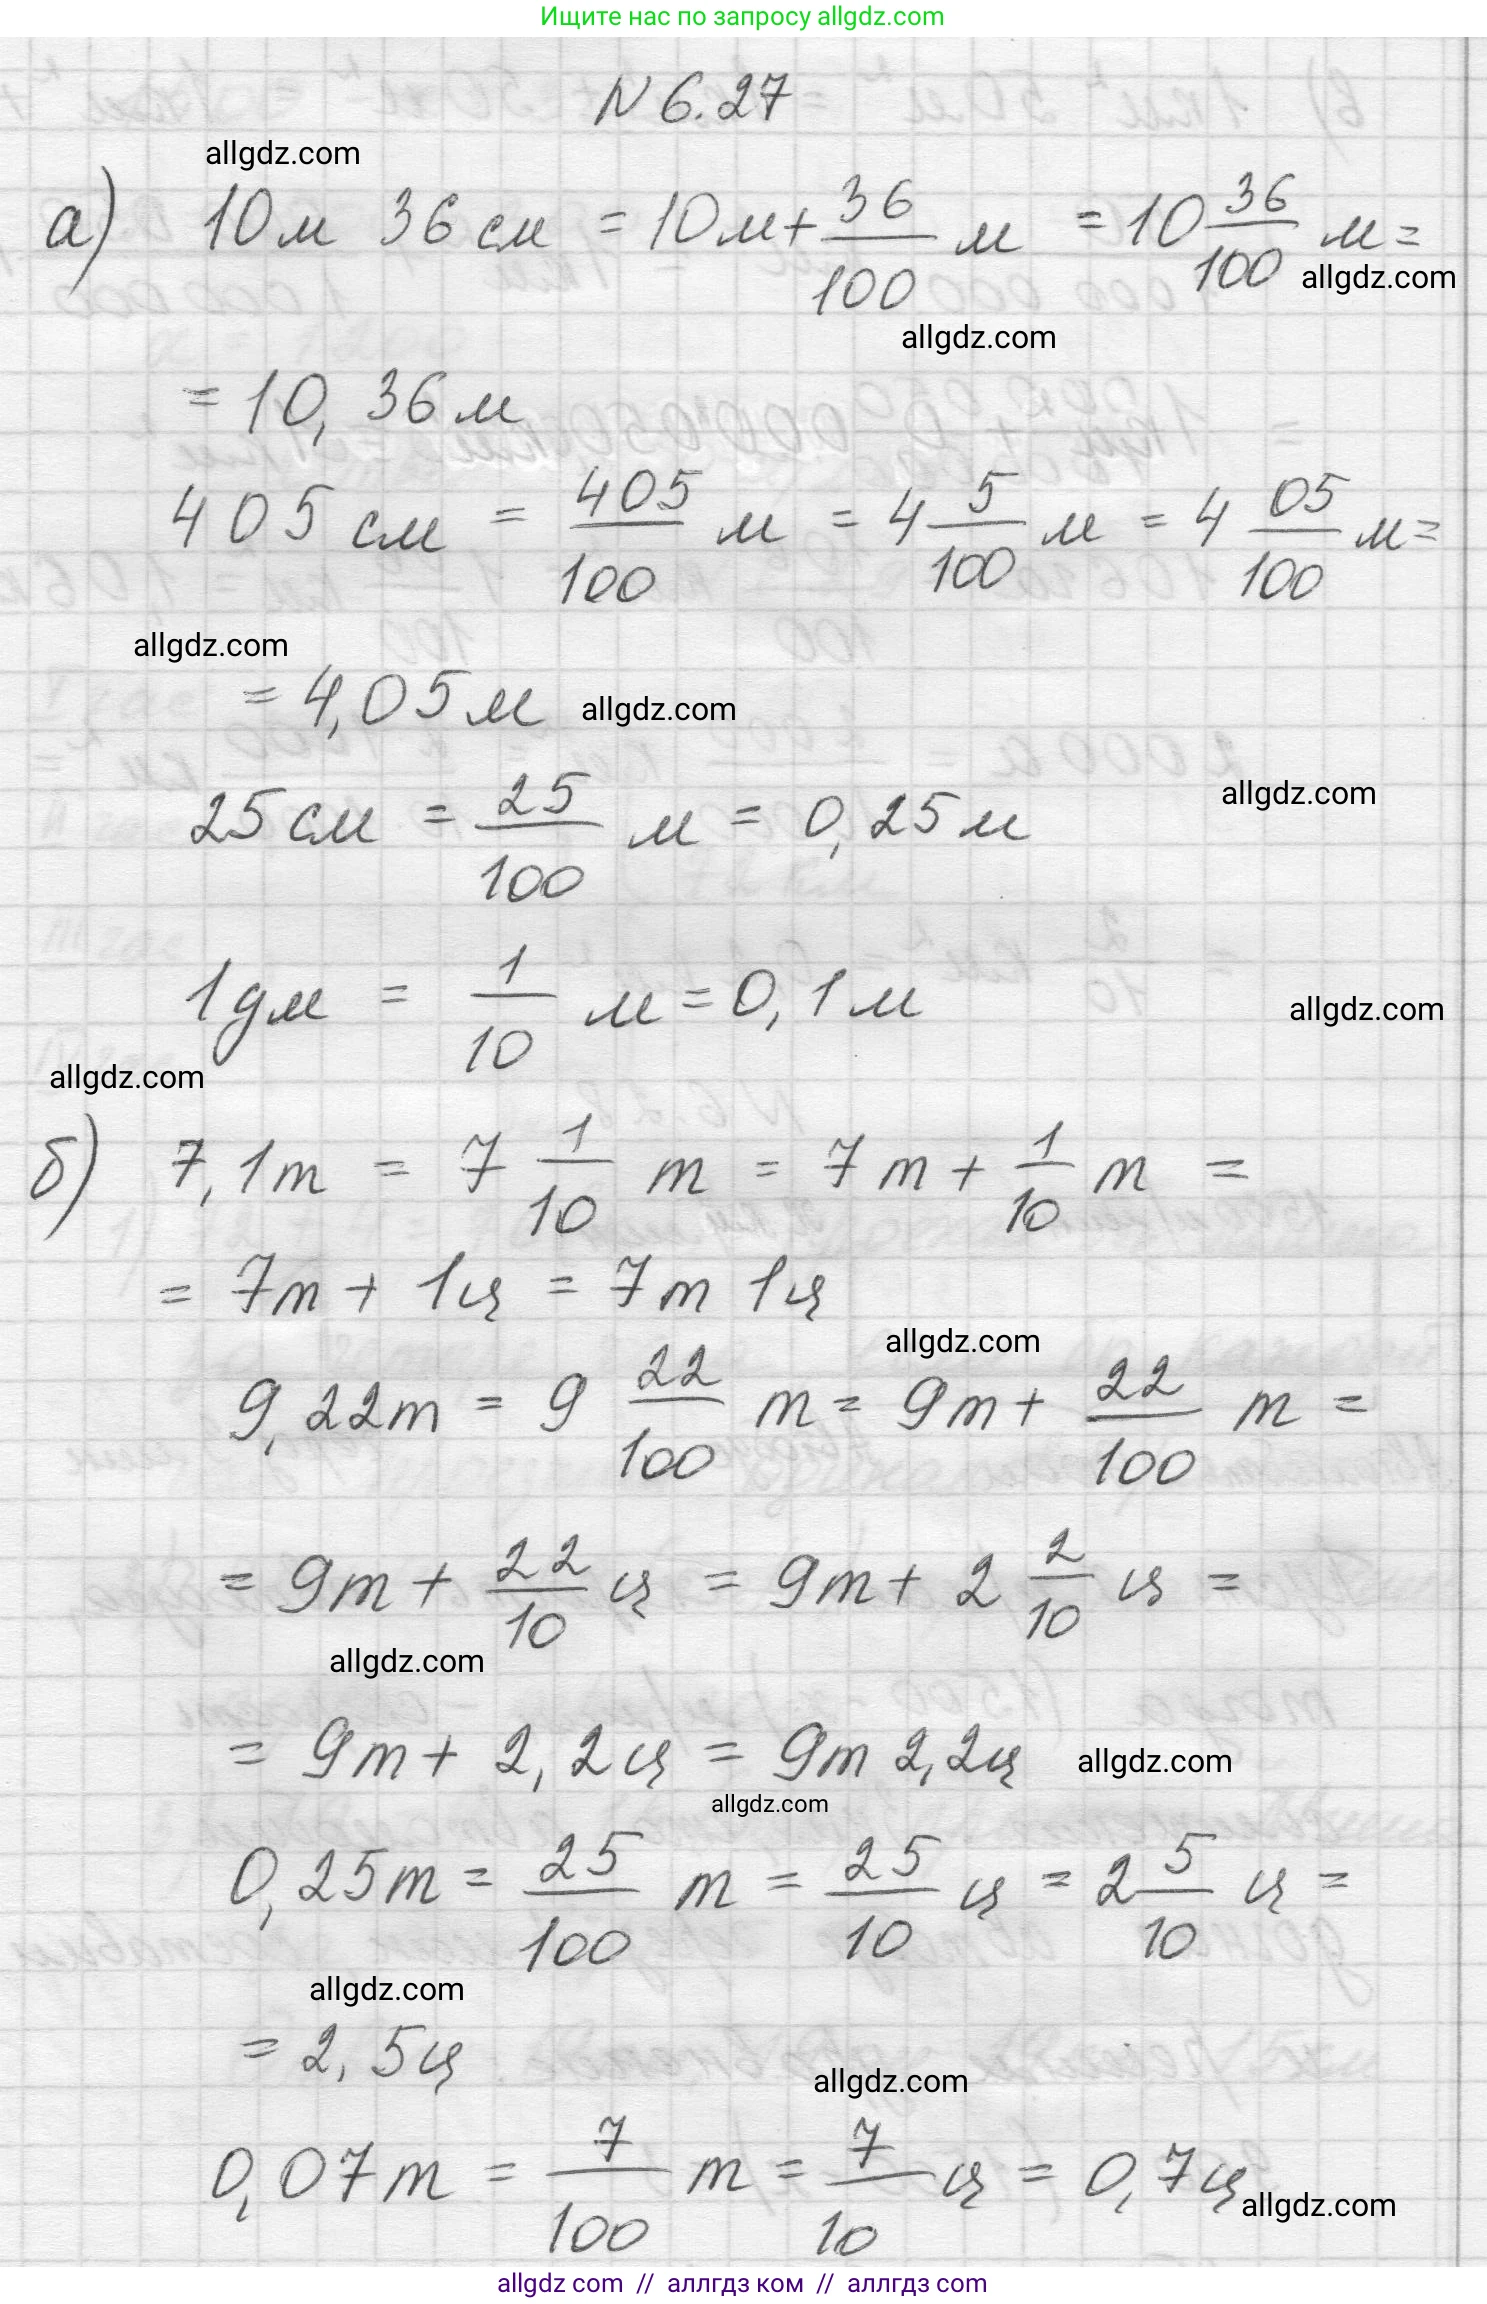 Ищите нас по запросу allgdz.com
N 6.27
allgdz.com
а) 10м 36 см = 10м + 36/100 м = 10 36/100 м =
allgdz.com
allgdz.com
= 10,36 м
405 см = 405/100 м = 4 5/100 м = 4 05/100 м =
allgdz.com
= 4,05 м
allgdz.com
allgdz.com
25 см = 25/100 м = 0,25 м
1 дм = 1/10 м = 0,1 м
allgdz.com
allgdz.com
б) 7,1т = 7 1/10 т = 7т + 1/10 т =
= 7т + 1ц = 7т 1ц
allgdz.com
9,22т = 9 22/100 т = 9т + 22/100 т =
= 9т + 22/10 ц = 9т + 2 2/10 ц =
allgdz.com
= 9т + 2,2ц = 9т 2,2ц
allgdz.com
allgdz.com
0,25т = 25/100 т = 25/10 ц = 2 5/10 ц =
allgdz.com
= 2,5ц
allgdz.com
0,07т = 7/100 т = 7/10 ц = 0,7ц
allgdz.com
allgdz com // аллгдз ком // аллгтз com